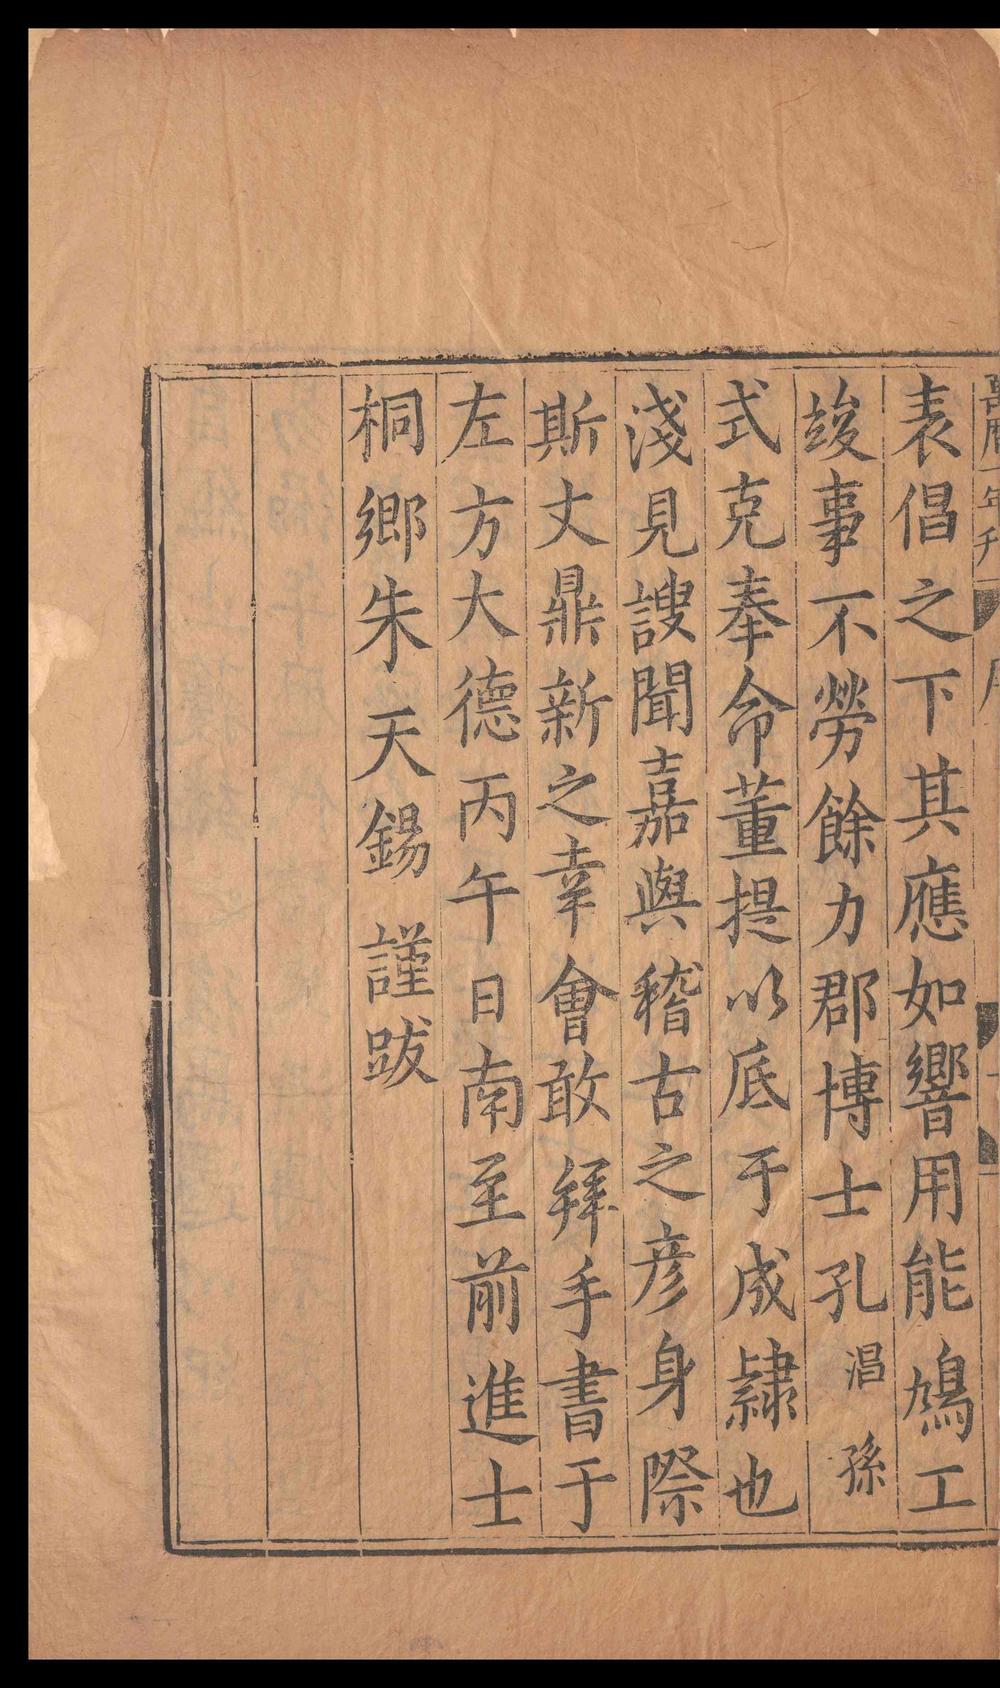 表倡之下其應如響用能鳩工
竣事不勞餘力郡博士孔淐孫
式克奉命董提以底于成隷也
淺見謏聞嘉與稽古之彦身際
斯文鼎新之幸會敢拜手書于
左方大德丙午日南至前進士
桐鄉朱天錫 謹跋